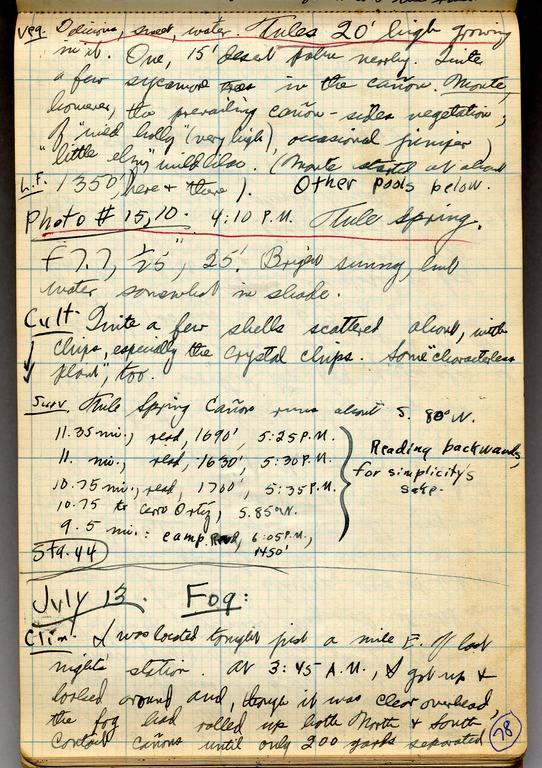 Veg. Delicious, sweet, water. Tules 20' high growing
in it. One, 15' desert palm nearby. Quite
a few sycamore trees in the cañon. Monte,
however, the prevailing cañon-sides vegetation,
of "wild holly" (very high), occasional juniper,
"little elm," wild lilac. (Monte started at about
L.F. 1350' here & there). Other pools below.
Photo # 15, 10. 4:10 P.M. Tule Spring.
f 7.7, 1/25", 25'. Bright sunny, but
water somewhat in shade.
Cult. Quite a few shells scattered about, with
chips, especially the crystal chips. Some "characterless
plant", too.
Surv. Tule Spring Cañon runs about S. 80° W.
11.35 mi., read, 1690', 5:25 P.M.
11. mi., read, 1630', 5:30 P.M.
10.75 mi., read, 1700', 5:35 P.M.
Reading backwards,
for simplicity's
sake.
10.75 to Cerro Ortiz, S. 85° W.
9.5 mi.: camp, 6:05 P.M.,
1450'
Sta. 44
July 13. Fog:
Clim. I was located tonight just a mile E. of last
night's station. At 3:45 A.M., I got up &
looked around and, though it was clear overhead,
the fog had rolled up both North & South
Contact cañons until only 200 yards separated
78